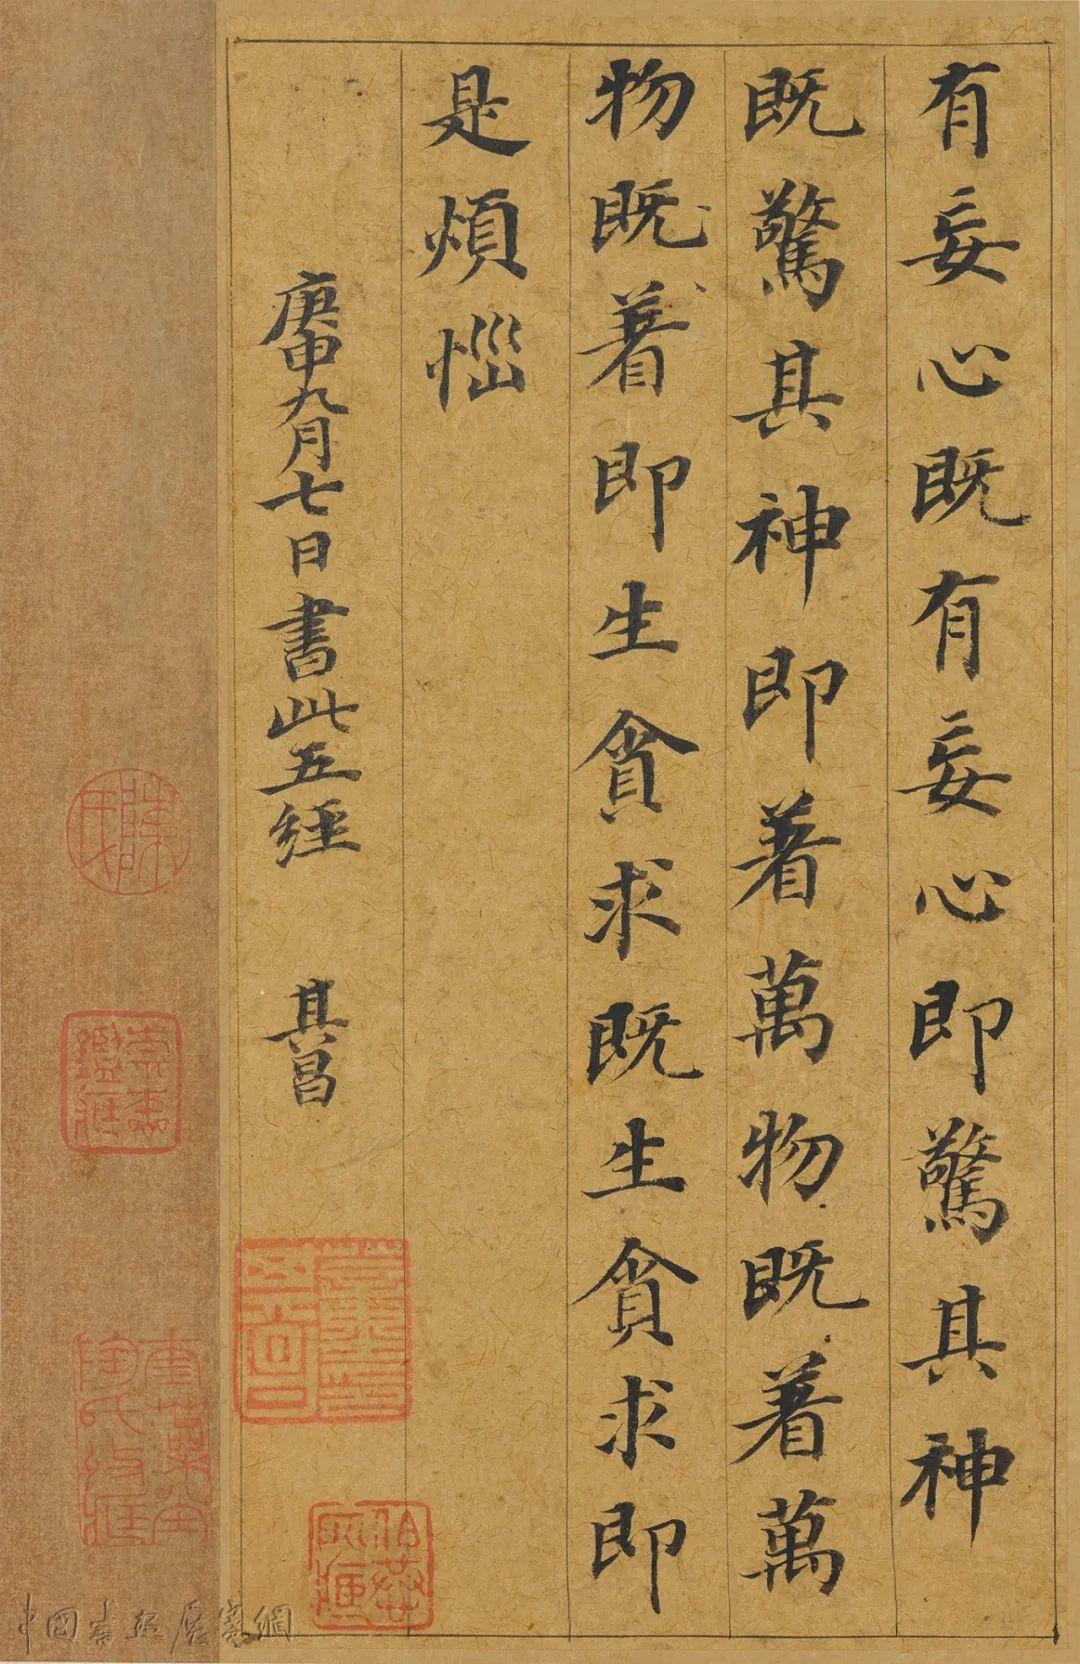 有妄心既有妄心即驚其神
既驚其神即著萬物既著萬
物既著即生貪求既生貪求即
是煩惱
庚申九月七日書此五經 其昌
中國書法展賽網